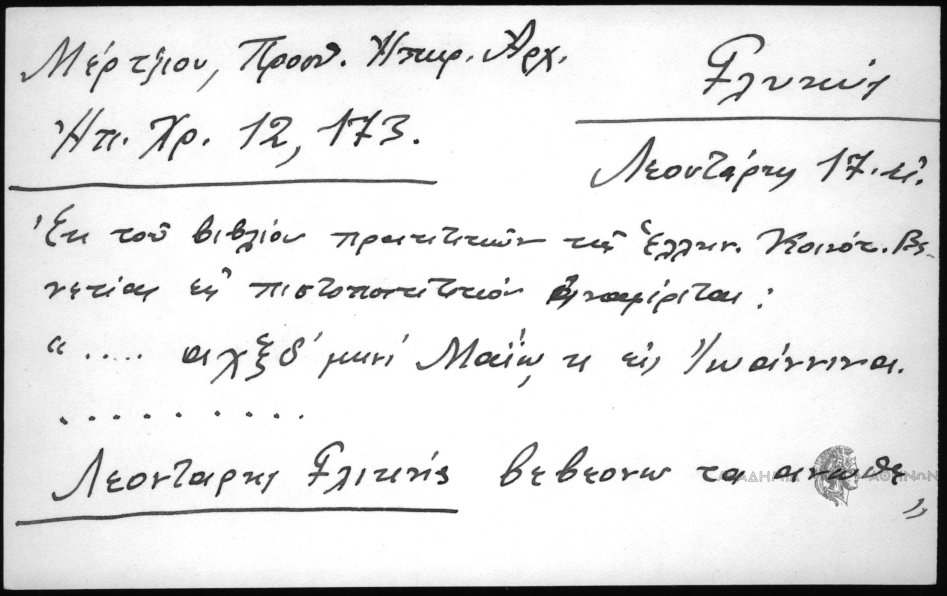 Μέρτζιου, Προσθ. Ηπειρ. Αρχ.
Ηπ. Χρ. 12, 173.
Γλυκύς
Λεοντάρης 17. αἰ.
Ἐκ τοῦ βιβλίου πρακτικῶν τῆς Ἑλλην. Κοινότ. Βε-
νετίας εἰς πιστοποιητικόν ἀναφέρεται:
".... αχξδ' μηνί Μαΐῳ κ εις Ἰωάννινα.
..........
Λεονταρης Γλικής βεβεονω τα ανωθε
"
ΑΚΑΔΗΜΙΑ ΑΘΗΝΩΝ